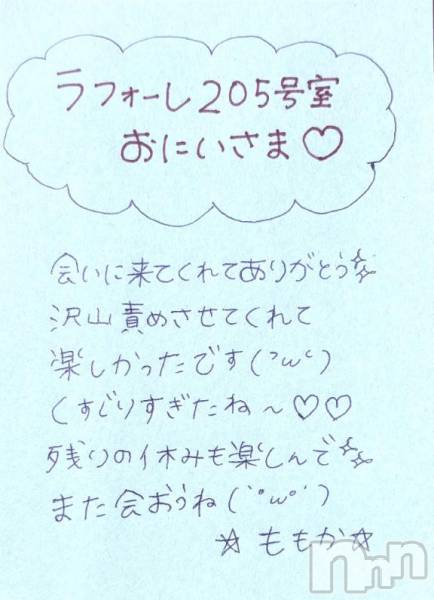 ラフォーレ205号室
おにいさま♡
会いに来てくれてありがとう☆
沢山責めさせてくれて
楽しかったです(^ω^)
くすぐりすぎたね〜♡♡
残りの休みも楽しんで☆
また会おうね(^ω^)
☆ももか☆
nnn